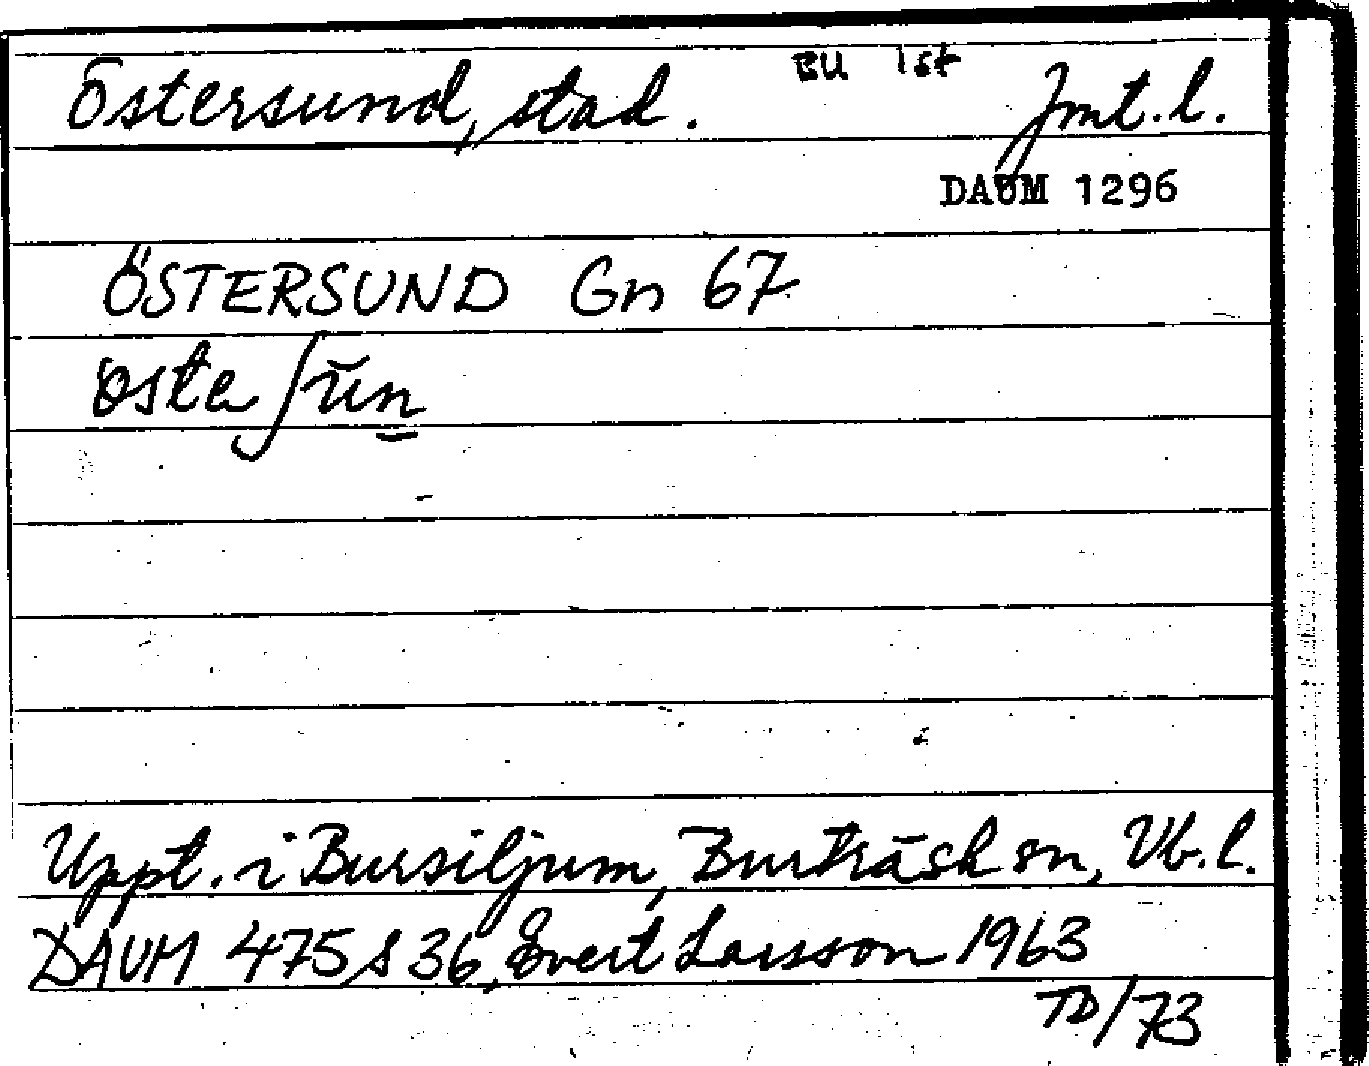 Östersund, stad. BU lst Jmt.l.
DAUM 1296
ÖSTERSUND Gn 67
Uppt. i Bursiljum, Burträsk sn, Vb.l.
DAUM 475 s 36, Evert Larsson 1963
TD/73